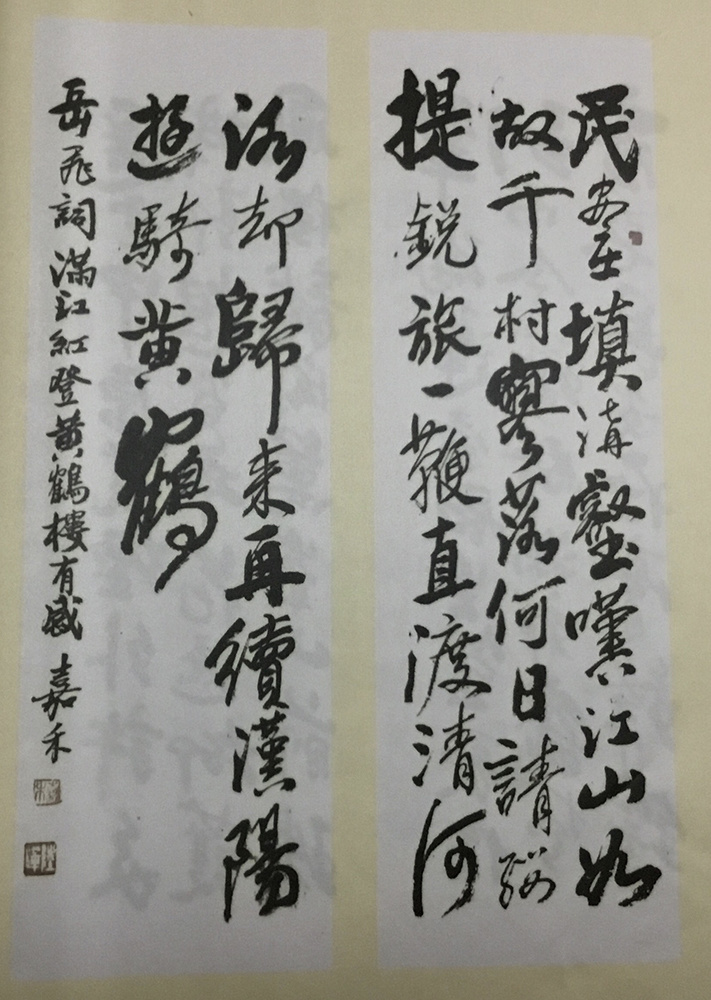 民安在填溝壑嘆江山如
故千村寥落何日請纓
提銳旅一鞭直渡清河
洛却歸来再續漢陽
遊騎黄鶴
岳飛詞滿江紅登黄鶴樓有感 嘉禾